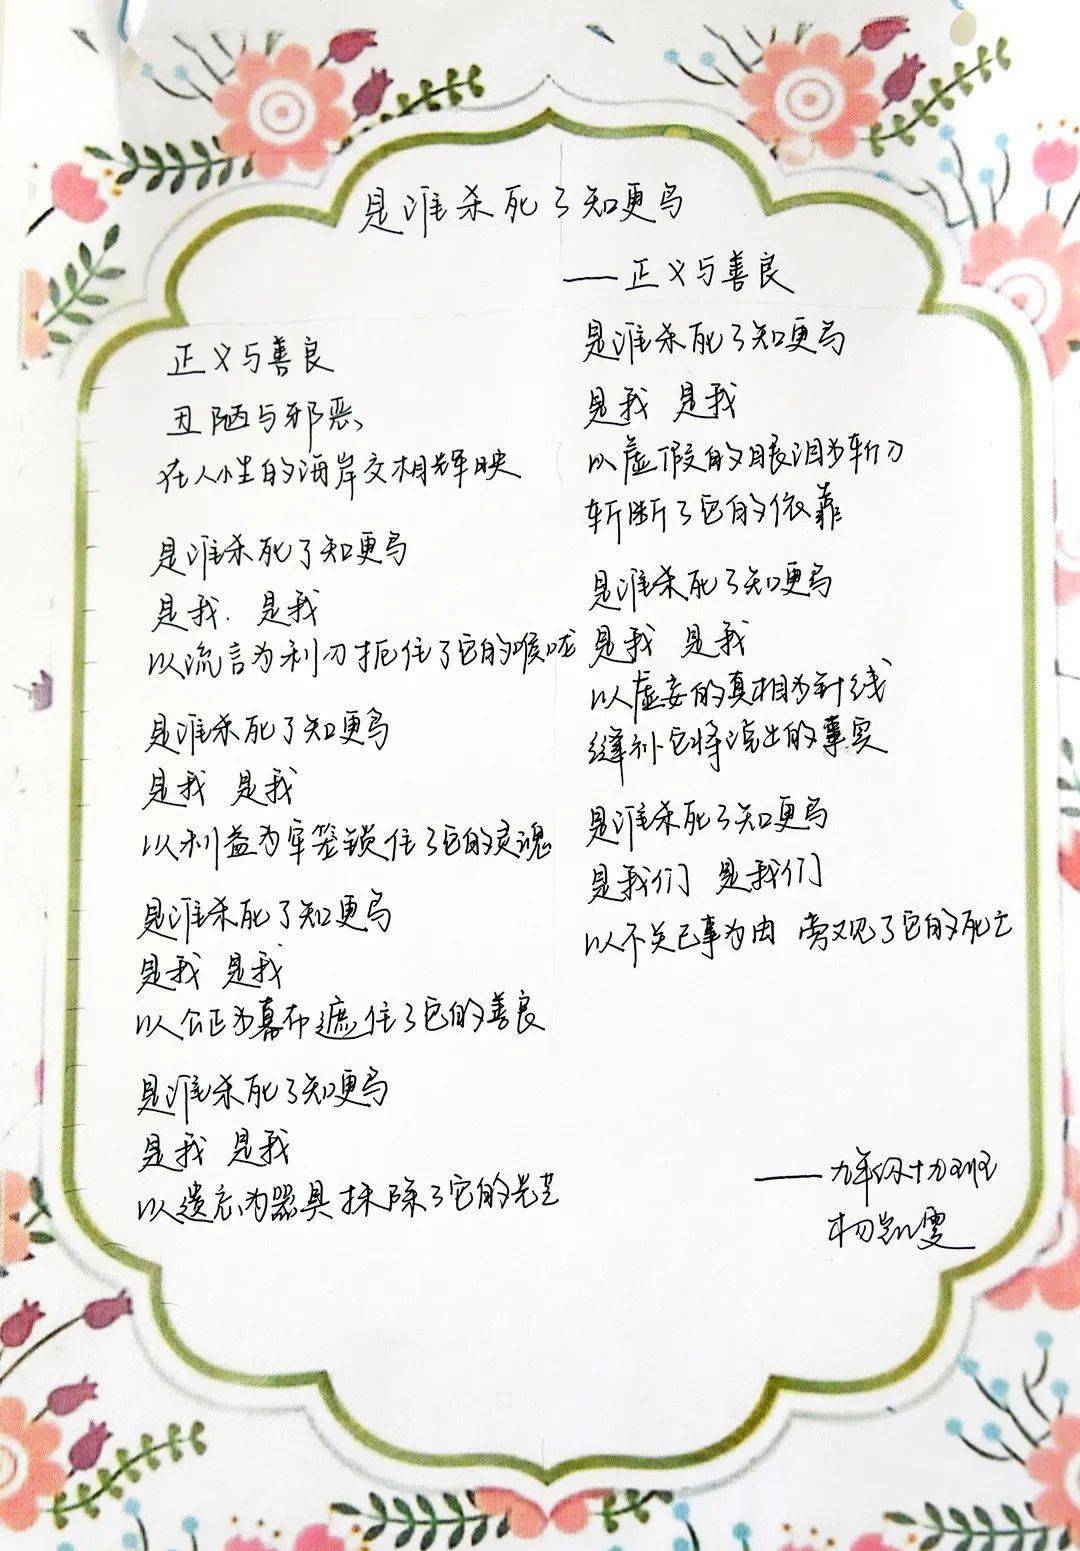 是谁杀死了知更鸟
——正义与善良
正义与善良
丑陋与邪恶、
在人性的海岸交相辉映
是谁杀死了知更鸟
是我.是我
以流言为利刃扼住了它的喉咙
是谁杀死了知更鸟
是我 是我
以利益为牢笼锁住了它的灵魂
是谁杀死了知更鸟
是我 是我
以公正为幕布遮住了它的善良
是谁杀死了知更鸟
是我 是我
以遗忘为器具抹除了它的光芒
是谁杀死了知更鸟
是我 是我
以虚假的眼泪为斩刀
斩断了它的依靠
是谁杀死了知更鸟
是我 是我
以虚妄的真相为针线
缝补它将说出的事实
是谁杀死了知更鸟
是我们 是我们
以不关己事为由 旁观了它的死亡
——九年级十九班
杨凯雯